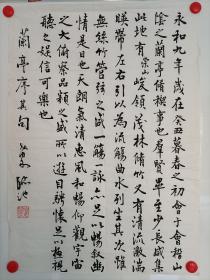 永和九年歲在癸丑暮春之初會于會稽
陰之蘭亭脩禊事也群賢畢至少長咸集
此地有崇山峻領茂林脩竹又有清流激湍
暎帶左右引以為流觴曲水列坐其次雖
無絲竹管弦之盛一觴一詠亦足以暢敘幽
情是日也天朗氣清惠風和暢仰觀宇宙
之大俯察品類之盛所以遊目騁懷足以極視
聽之娛信可樂也
蘭亭序其句